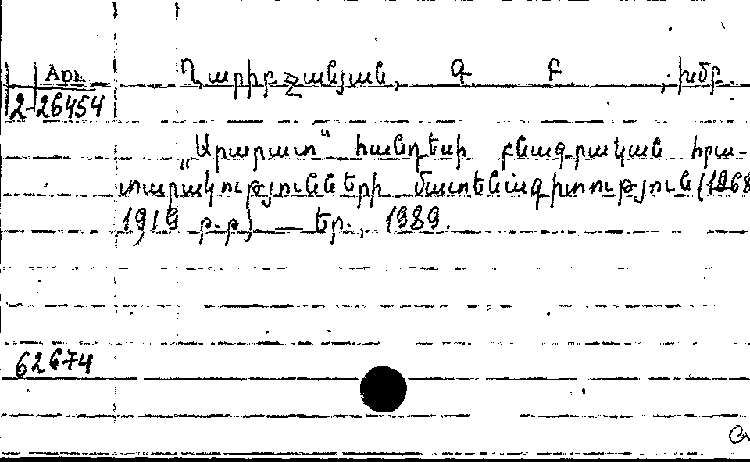 Арм. Ղարիբջանյան, Գ. Բ., խմբ.
2-26454
„Արարատ" հանդեսի բնագրական հրա-
տարակությունների մատենագիտություն (1868
1919 թ.թ.) — Եր., 1989.
62674